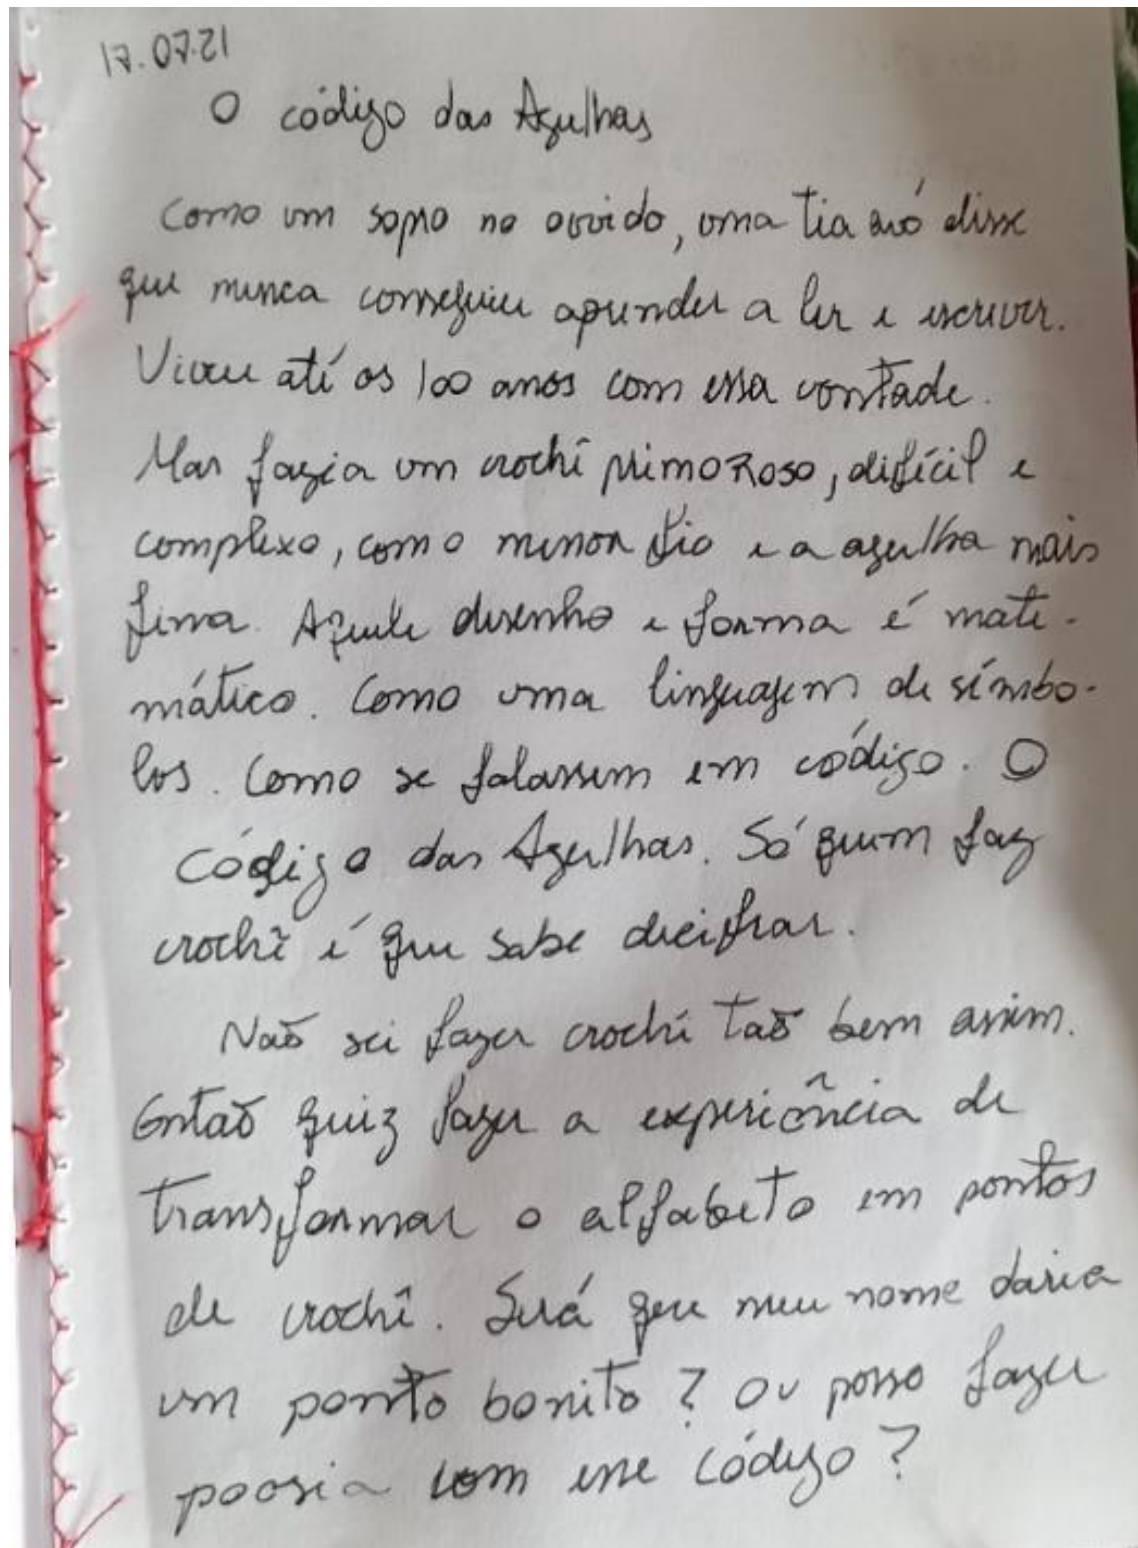 17.07.21
O código das Agulhas
Como um sopro no ouvido, uma tia avó disse
que nunca conseguiu aprender a ler e escrever.
Viveu até os 100 anos com essa vontade.
Mas fazia um crochê primoroso, difícil e
complexo, com o menor fio e a agulha mais
fina. Aquele desenho e forma é mate-
mático. Como uma linguagem de símbo-
los. Como se falassem em código. O
Código das Agulhas. Só quem faz
crochê é que sabe decifrar.
Não sei fazer crochê tão bem assim.
Então quiz fazer a experiência de
transformar o alfabeto em pontos
de crochê. Será que meu nome daria
um ponto bonito? Ou posso fazer
poesia com esse código?